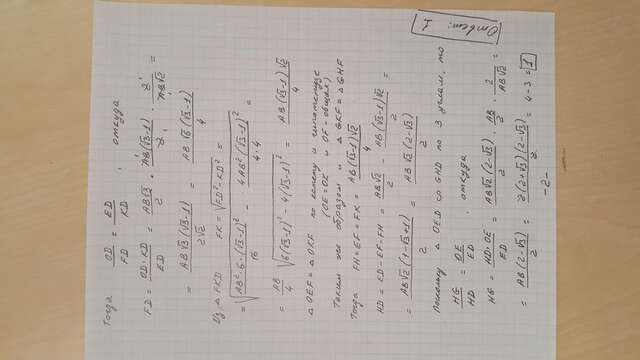 Тогда OD/FD = ED/KD , откуда
FD = OD·KD/ED = AB√3/2 · AB(√3-1)/2 · 2/AB√2 =
= AB√3(√3-1)/2√2 = AB√6(√3-1)/4
Из △ FKD FK = √(FD²-KD²) =
= √(AB²·6·(√3-1)²/16 - 4AB²(√3-1)²/4·4) =
= AB/4 √(6(√3-1)²-4(√3-1)²) = AB(√3-1)√2/4
△ OEF = △ OKF по катету и гипотенузе
(OE=OK и OF-общая)
Таким же образом и △ GKF = △ GHF
Тогда FH = EF = FK = AB(√3-1)√2/4
HD = ED-EF-FH = AB√2/2 - AB(√3-1)√2/2 =
= AB√2(1-√3+1)/2 = AB√2(2-√3)/2
Поскольку △ OED ∾ GHD по 3 углам, то
HG/HD = OE/ED , откуда
HG = HD·OE/ED = AB√2(2-√3)/2 · AB/2 · 2/AB√2 =
= AB(2-√3)/2 = 2(2+√3)(2-√3)/2 = 4-3 = 1
Ответ: 1
-2-